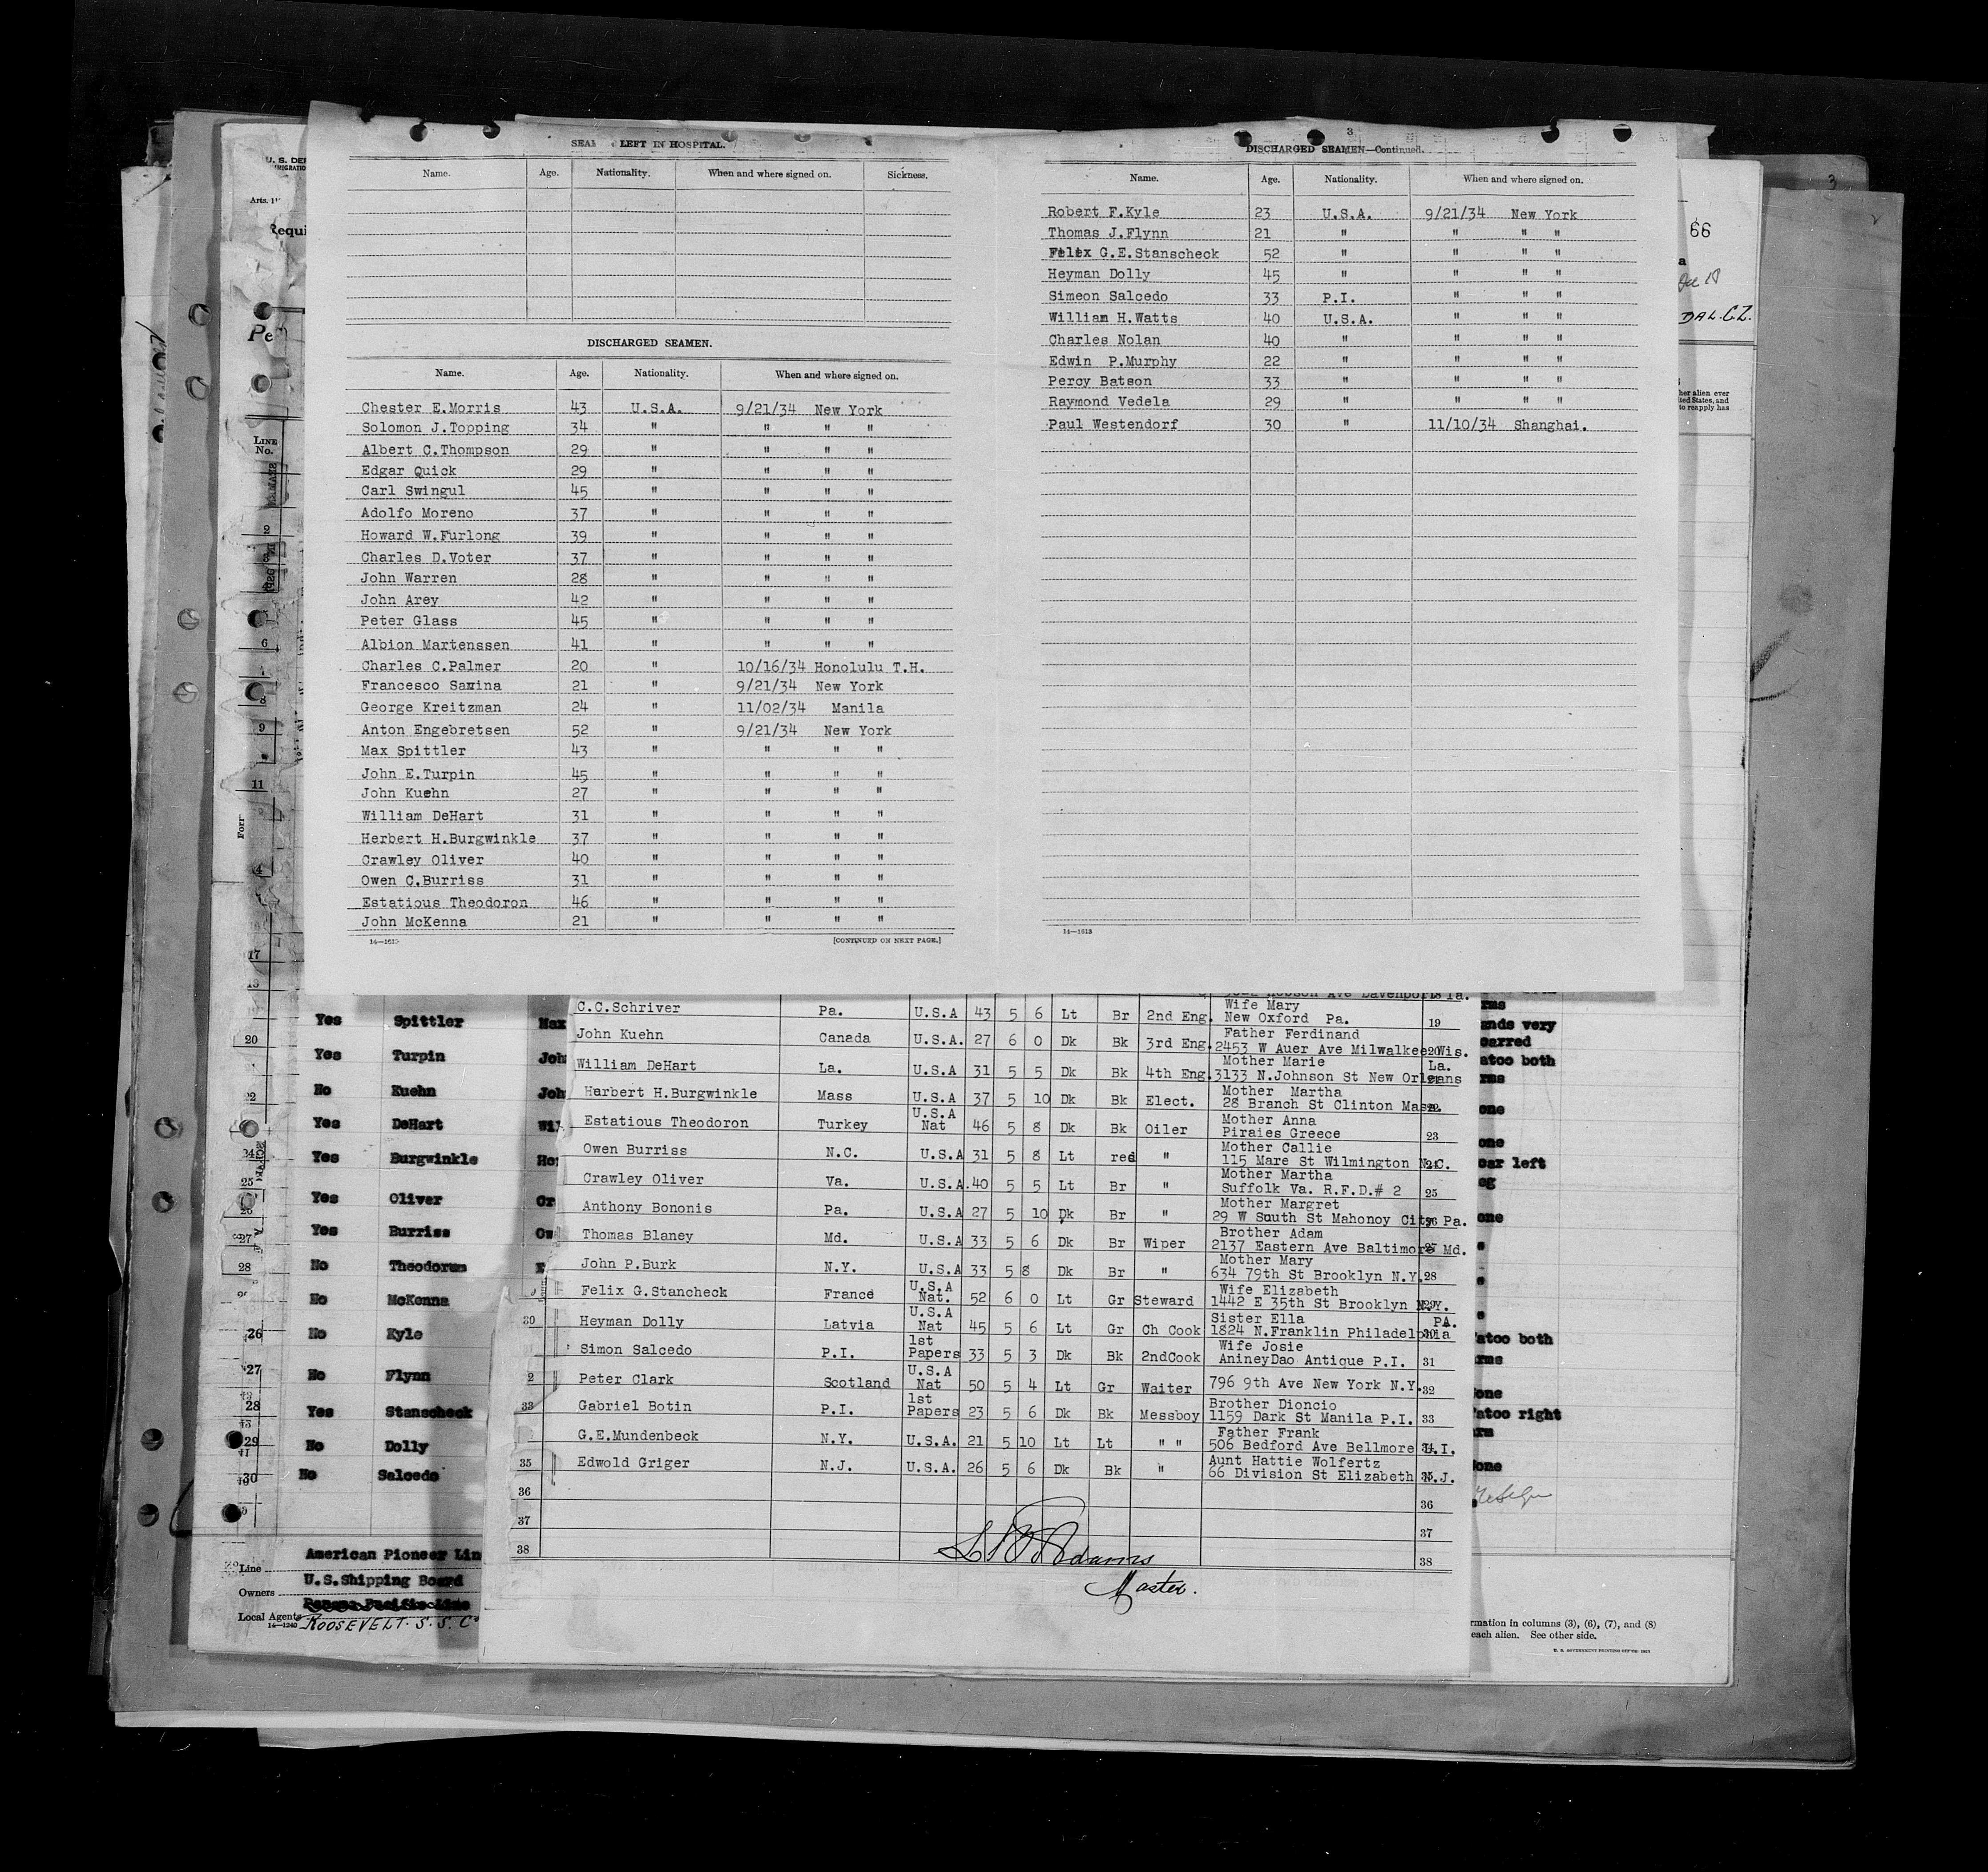 LEFT IN HOSPITAL.
Name. Age. Nationality. When and where signed on. Sickness.
DISCHARGED SEAMEN.
Name. Age. Nationality. When and where signed on.
Chester E.Morris 43 U.S.A. 9/21/34 New York
Solomon J.Topping 34 " " " "
Albert C.Thompson 29 " " " "
Edgar Quick 29 " " " "
Carl Swingul 45 " " " "
Adolfo Moreno 37 " " " "
Howard W.Furlong 39 " " " "
Charles D.Voter 37 " " " "
John Warren 28 " " " "
John Arey 42 " " " "
Peter Glass 45 " " " "
Albion Martenssen 41 " " " "
Charles C.Palmer 20 " 10/16/34 Honolulu T.H.
Francesco 21 " 9/21/34 New York
George Kreitzman 24 " 11/02/34 Manila
Anton Engebretsen 52 " 9/21/34 New York
Max Spittler 43 " " " "
John E.Turpin 45 " " " "
John Kuehn 27 " " " "
William DeHart 31 " " " "
Herbert H.Burgwinkle 37 " " " "
Crawley Oliver 40 " " " "
Owen C.Burriss 31 " " " "
Estatious Theodoron 46 " " " "
John McKenna 21 " " " "
[CONTINUED ON NEXT PAGE.]
3
DISCHARGED SEAMEN—Continued.
Name. Age. Nationality. When and where signed on.
Robert F.Kyle 23 U.S.A. 9/21/34 New York
Thomas J.Flynn 21 " " " "
Felix G.E.Stanscheck 52 " " " "
Heyman Dolly 45 " " " "
Simeon Salcedo 33 P.I. " " "
William H.Watts 40 U.S.A. " " "
Charles Nolan 40 " " " "
Edwin P.Murphy 22 " " " "
Percy Batson 33 " " " "
Raymond Vedela 29 " " " "
Paul Westendorf 30 " 11/10/34 Shanghai.
14—1613
66
C.C.Schriver Pa. U.S.A 43 5 6 Lt Br 2nd Eng. Wife Mary New Oxford Pa. 19
John Kuehn Canada U.S.A. 27 6 0 Dk Bk 3rd Eng. Father Ferdinand 2453 W Auer Ave Milwalkee Wis. 20
William DeHart La. U.S.A 31 5 5 Dk Bk 4th Eng. Mother Marie 3133 N.Johnson St New Orleans La.
Harbert H.Burgwinkle Mass U.S.A 37 5 10 Dk Bk Elect. Mother Martha 28 Branch St Clinton Mass.
Estatious Theodoron Turkey U.S.A Nat 46 5 8 Dk Bk Oiler Mother Anna Piraies Greece 23
Owen Burriss N.C. U.S.A 31 5 8 Lt red " Mother Callie 115 Mare St Wilmington N.C. 24
Crawley Oliver Va. U.S.A. 40 5 5 Lt Br " Mother Martha Suffolk Va. R.F.D.# 2 25
Anthony Bononis Pa. U.S.A 27 5 10 Dk Br " Mother Margret 29 W South St Mahonoy City Pa. 26
Thomas Blaney Md. U.S.A 33 5 6 Dk Br Wiper Brother Adam 2137 Eastern Ave Baltimore Md. 27
John P.Burk N.Y. U.S.A 33 5 8 Dk Br " Mother Mary 634 79th St Brooklyn N.Y. 28
Felix G.Stancheck France U.S.A Nat. 52 6 0 Lt Gr Steward Wife Elizabeth 1442 E 35th St Brooklyn N.Y. 29
30 Heyman Dolly Latvia U.S.A Nat 45 5 6 Lt Gr Ch Cook Sister Ella 1824 N.Franklin Philadelphia PA. 30
Simon Salcedo P.I. 1st Papers 33 5 3 Dk Bk 2ndCook Wife Josie AnineyDao Antique P.I. 31
Peter Clark Scotland U.S.A Nat 50 5 4 Lt Gr Waiter 796 9th Ave New York N.Y. 32
33 Gabriel Botin P.I. 1st Papers 23 5 6 Dk Bk Messboy Brother Dioncio 1159 Dark St Manila P.I. 33
G.E.Mundenbeck N.Y. U.S.A. 21 5 10 Lt Lt " " Father Frank 506 Bedford Ave Bellmore L.I. 34
35 Edwold Griger N.J. U.S.A. 26 5 6 Dk Bk " Aunt Hattie Wolfertz 66 Division St Elizabeth N.J. 35
36 36
37 37
38 38
Adams
Master.
LINE No.
Yes Spittler Max
20 Yes Turpin
No Kuehn
Yes DeHart
Yes Burgwinkle
25 Yes Oliver
27 Yes Burriss
28 No Theodorun
No McKenna
26 No Kyle
27 No Flynn
28 Yes Stanscheck
29 No Dolly
30 No Salcedo
Line American Pioneer Lin
Owners U.S.Shipping Board
Local Agents ROOSEVELT. S.S. Co
14—1240
rmation in columns (3), (6), (7), and (8)
each alien. See other side.